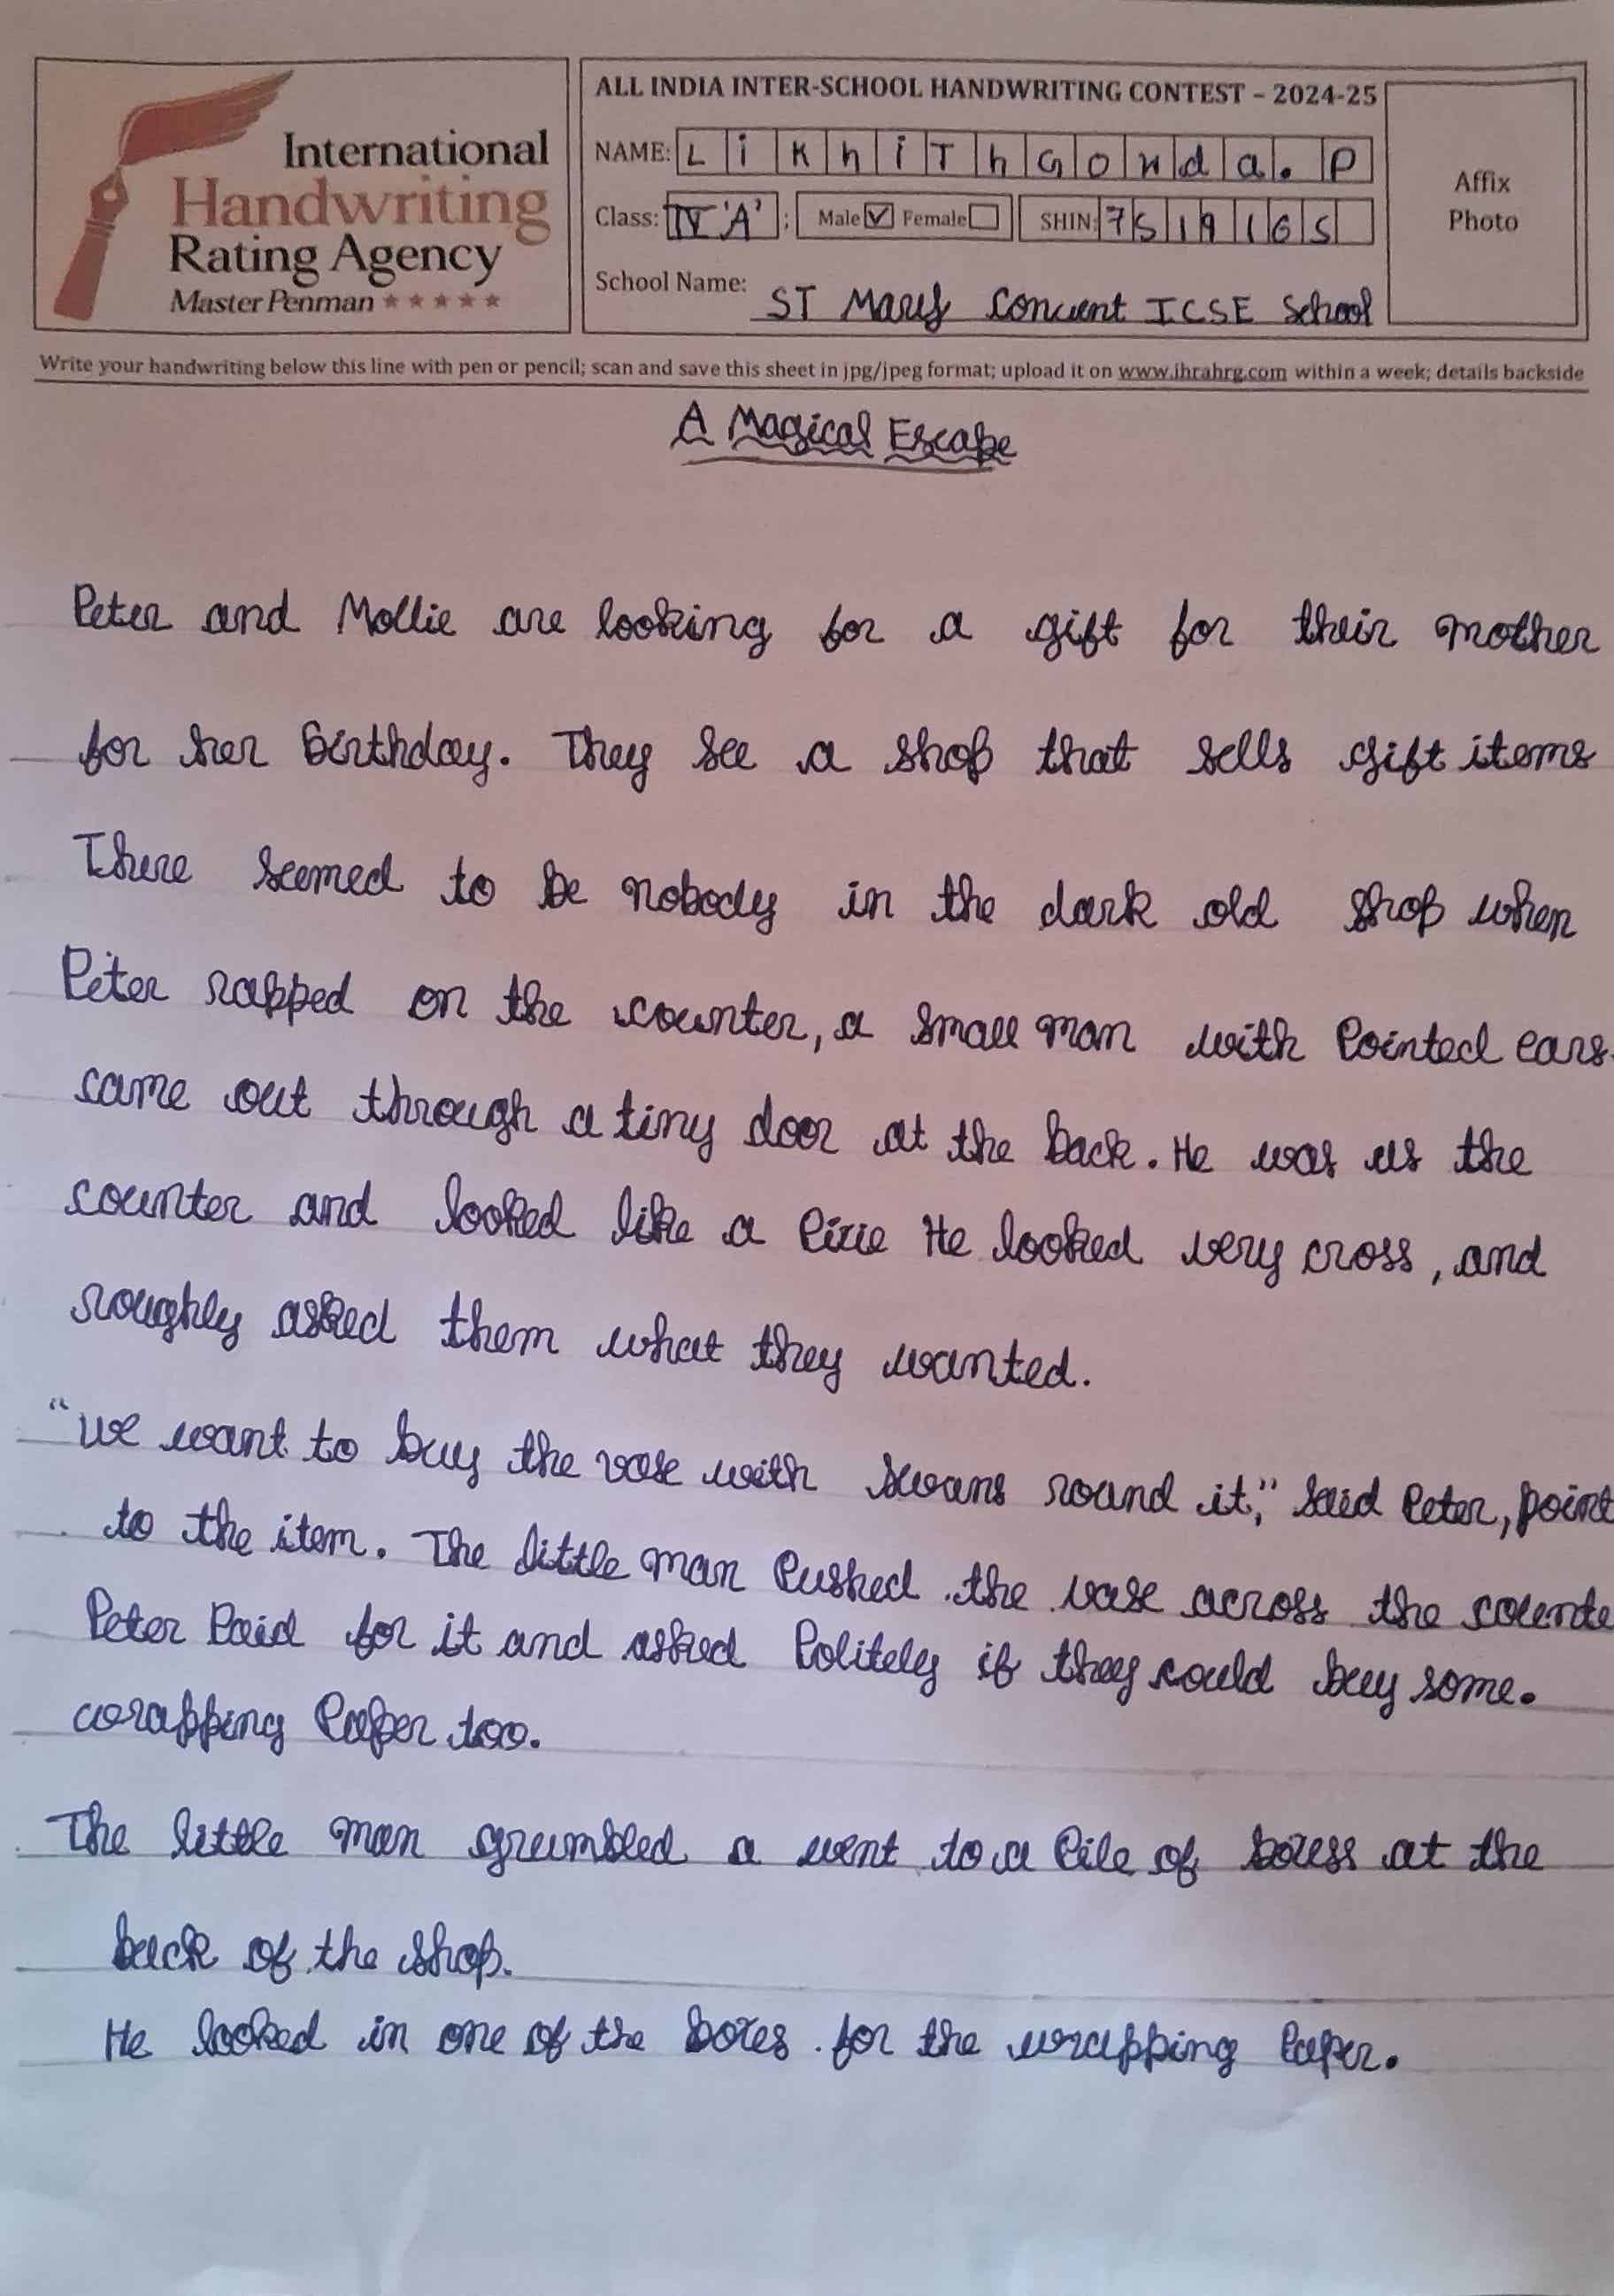 International
Handwriting
Rating Agency
Master Penman ★★★★★
ALL INDIA INTER-SCHOOL HANDWRITING CONTEST – 2024-25
NAME: LikhiThGowda.P
Class: IV 'A' ; Male ☑ Female ☐ SHIN: 7519165
School Name: ST Marys Convent ICSE School
Affix
Photo
Write your handwriting below this line with pen or pencil; scan and save this sheet in jpg/jpeg format; upload it on www.ihrahrg.com within a week; details backside
A Magical Escape
Peter and Mollie are looking for a gift for their mother
for her birthday. They see a shop that sells gift items
There seemed to be nobody in the dark old shop when
Peter rapped on the counter, a small man with Pointed ears
came out through a tiny door at the back. He was us the
counter and looked like a Pixie He looked very cross, and
roughly asked them what they wanted.
"We want to buy the vase with swans round it," said Peter, point
to the item. The little man Pushed the vase across the counte
Peter Paid for it and asked Politely if they could buy some.
wrapping Paper too.
The little man grumbled a went to a Pile of boxess at the
back of the shop.
He looked in one of the boxes for the wrapping Paper.